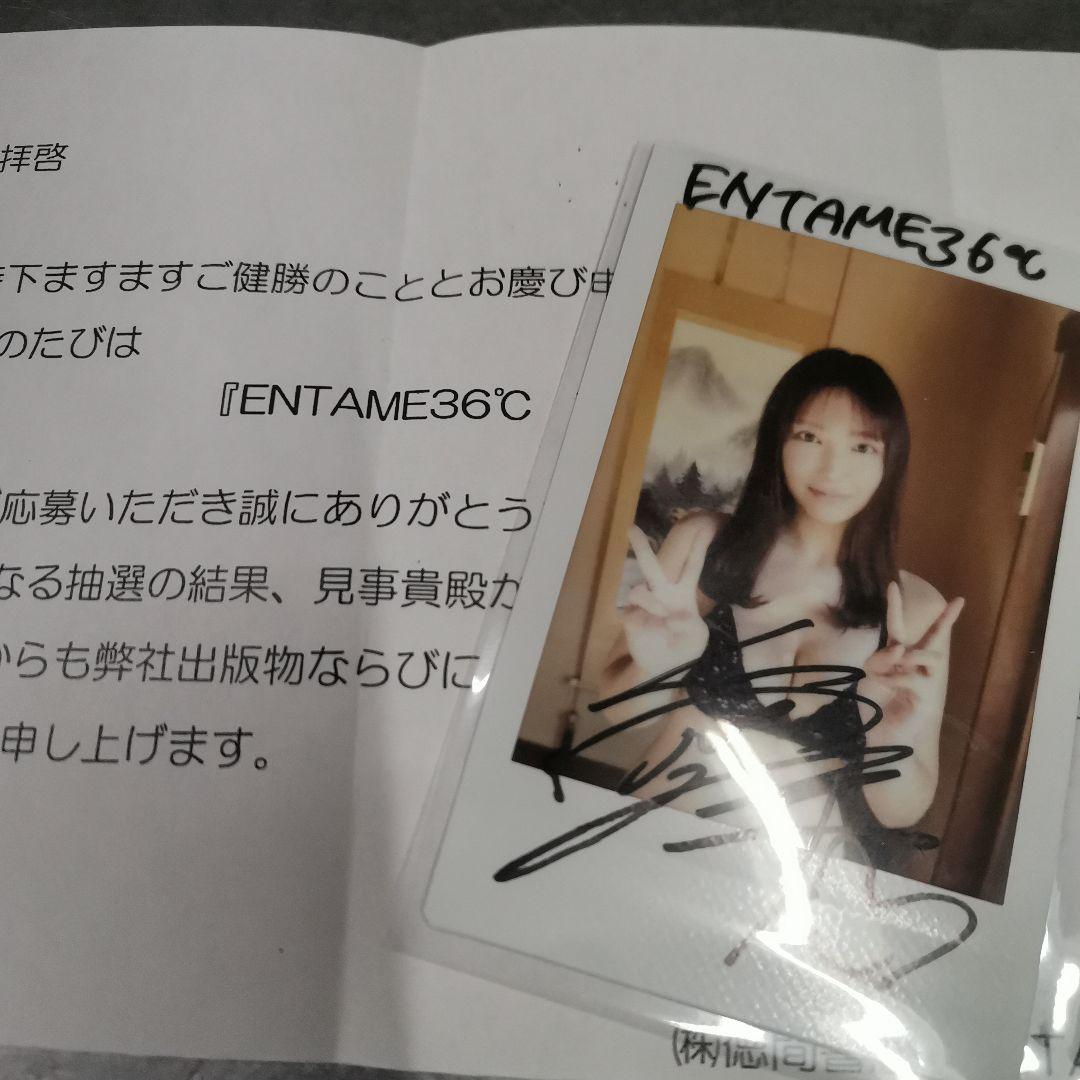 拝啓
下ますますご健勝のこととお慶び申
のたびは
『ENTAME36℃
応募いただき誠にありがとう
なる抽選の結果、見事貴殿が
からも弊社出版物ならびに
申し上げます。
ENTAME36℃
㈱徳間書